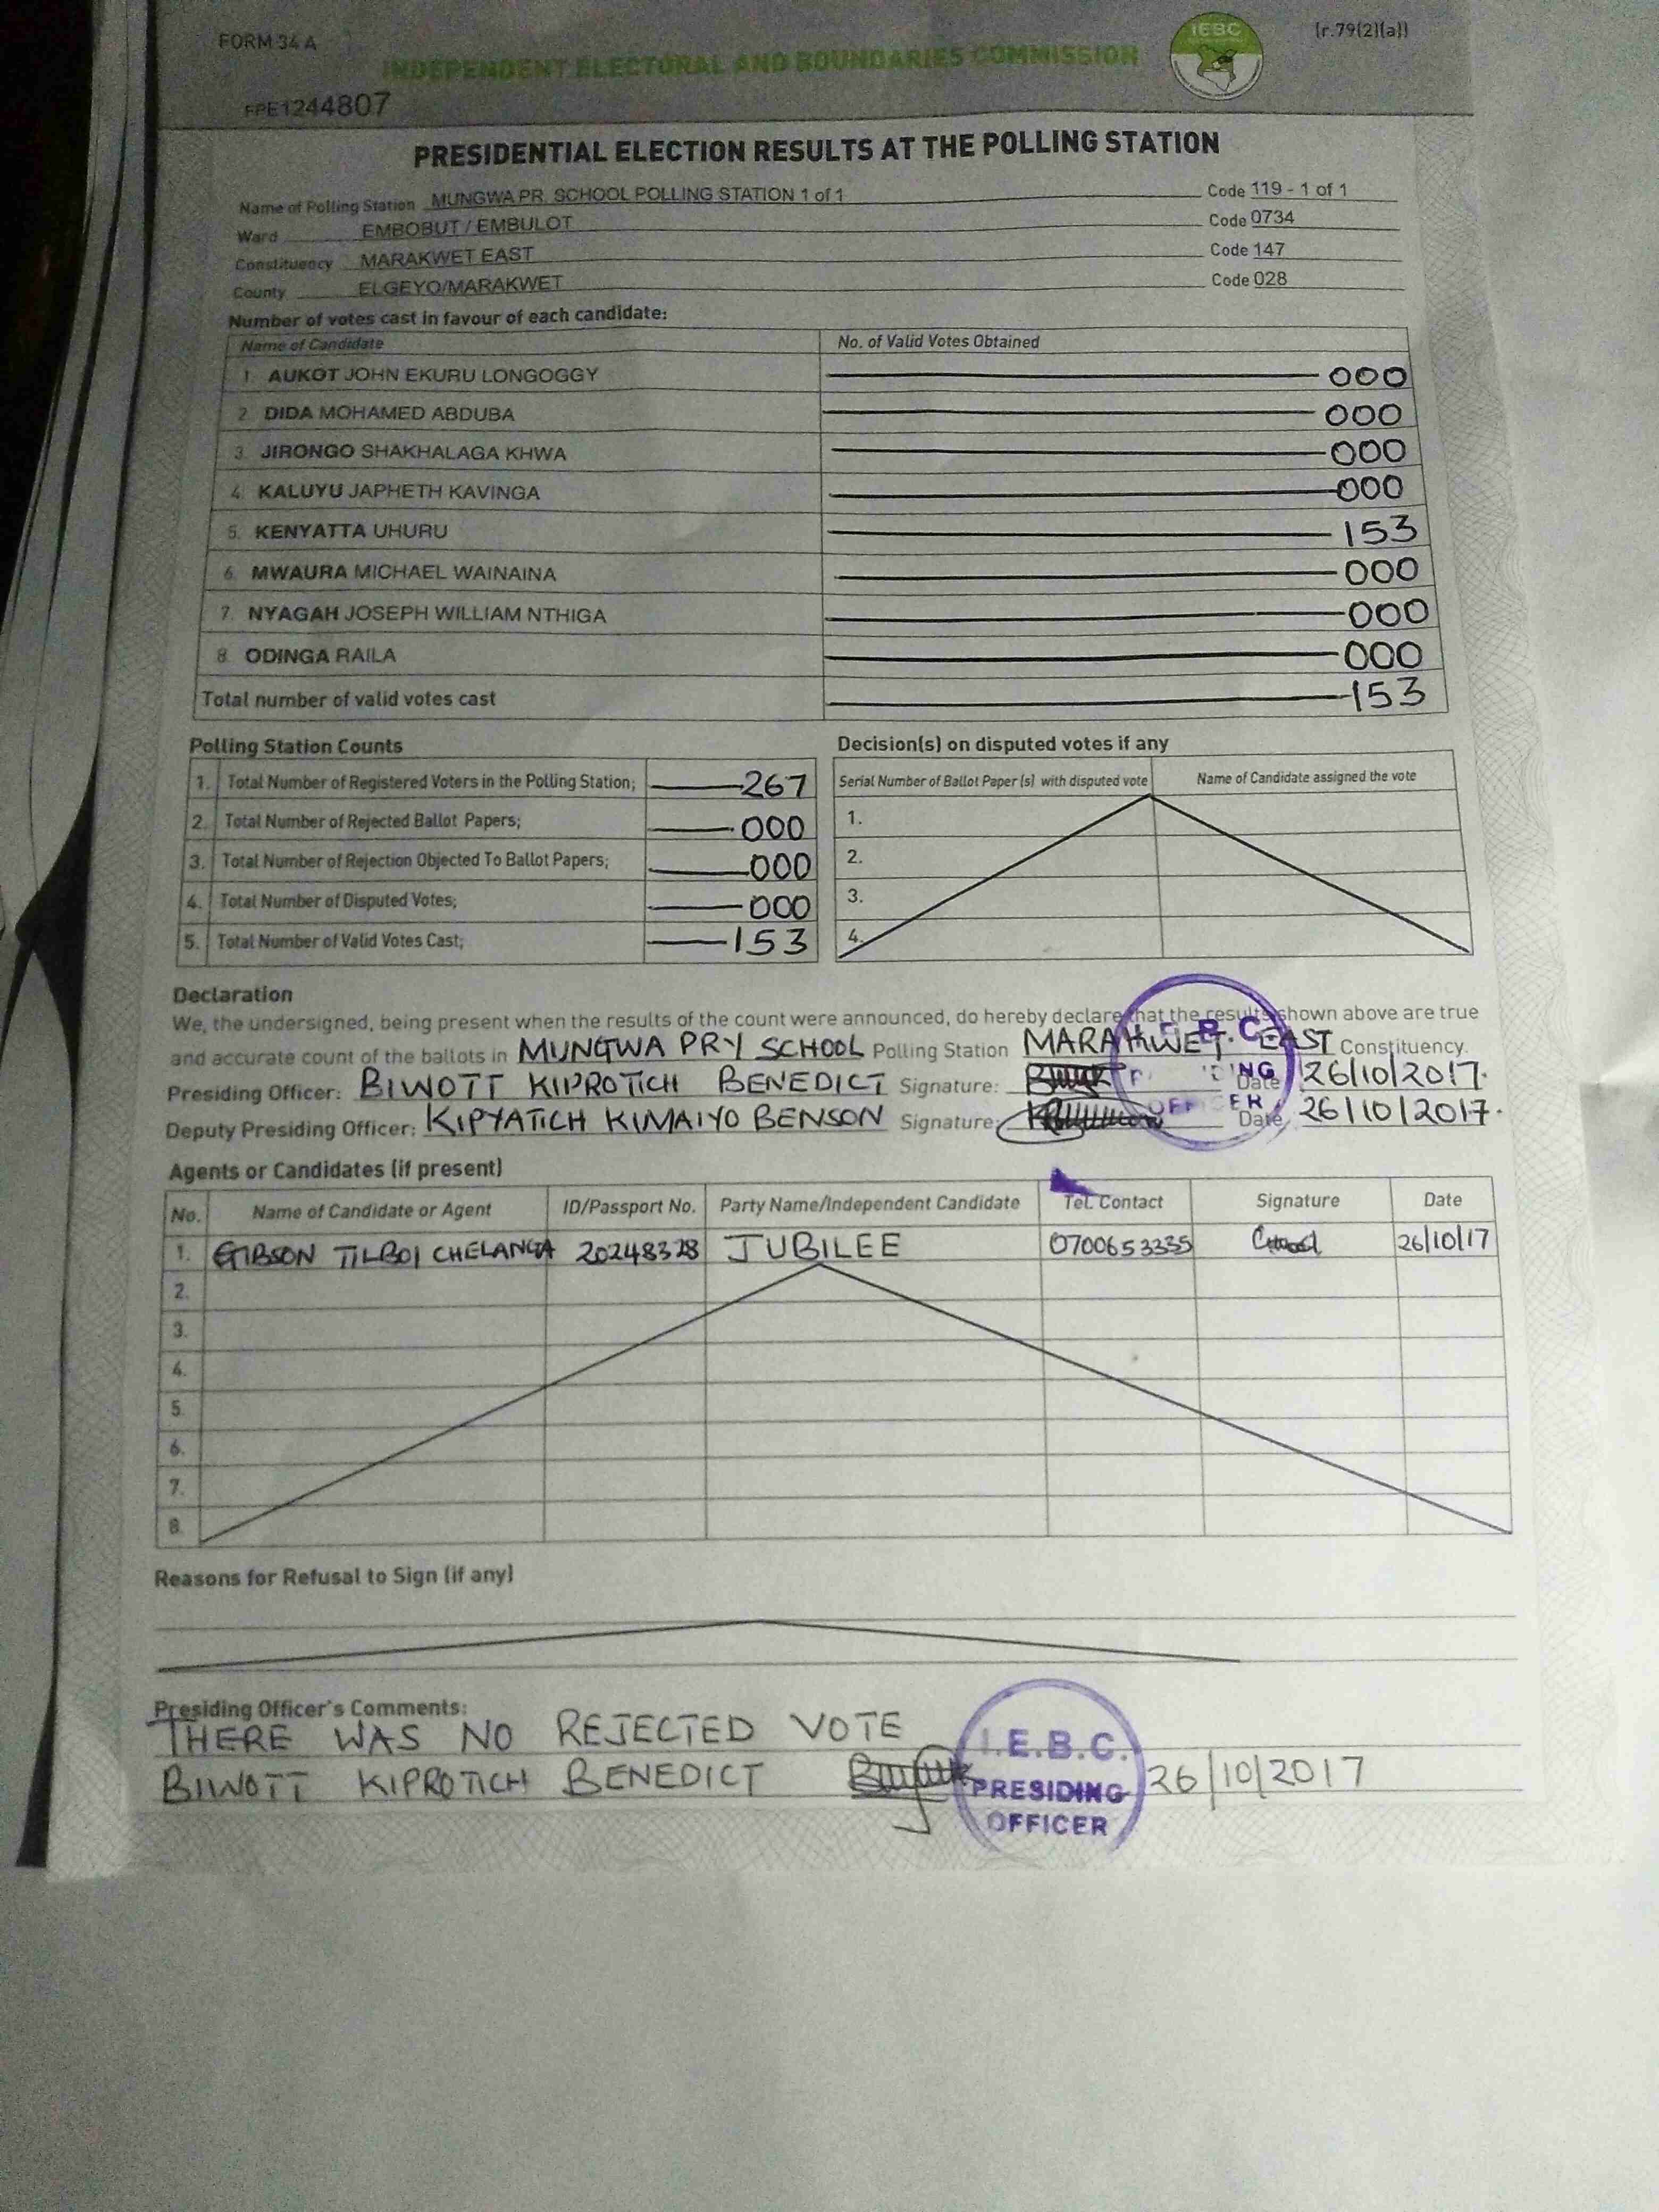 FORM 34 A
(r.79(2)(a))
INDEPENDENT ELECTORAL AND BOUNDARIES COMMISSION
IEBC
FPE1244807
PRESIDENTIAL ELECTION RESULTS AT THE POLLING STATION
Name of Polling Station MUNGWA PR. SCHOOL POLLING STATION 1 of 1 Code 119 - 1 of 1
Ward EMBOBUT / EMBULOT Code 0734
Constituency MARAKWET EAST Code 147
County ELGEYO/MARAKWET Code 028
Number of votes cast in favour of each candidate:
Name of Candidate No. of Valid Votes Obtained
1. AUKOT JOHN EKURU LONGOGGY 000
2. DIDA MOHAMED ABDUBA 000
3. JIRONGO SHAKHALAGA KHWA 000
4. KALUYU JAPHETH KAVINGA 000
5. KENYATTA UHURU 153
6. MWAURA MICHAEL WAINAINA 000
7. NYAGAH JOSEPH WILLIAM NTHIGA 000
8. ODINGA RAILA 000
Total number of valid votes cast 153
Polling Station Counts
1. Total Number of Registered Voters in the Polling Station; 267
2. Total Number of Rejected Ballot Papers; 000
3. Total Number of Rejection Objected To Ballot Papers; 000
4. Total Number of Disputed Votes; 000
5. Total Number of Valid Votes Cast; 153
Decision(s) on disputed votes if any
Serial Number of Ballot Paper (s) with disputed vote Name of Candidate assigned the vote
1.
2.
3.
4.
Declaration
We, the undersigned, being present when the results of the count were announced, do hereby declare that the results shown above are true
and accurate count of the ballots in MUNGWA PRY SCHOOL Polling Station MARAKWET EAST Constituency.
Presiding Officer: BIWOTT KIPROTICH BENEDICT Signature: Date 26/10/2017.
Deputy Presiding Officer: KIPYATICH KIMAIYO BENSON Signature: Date 26/10/2017.
Agents or Candidates (if present)
No. Name of Candidate or Agent ID/Passport No. Party Name/Independent Candidate Tel. Contact Signature Date
1. GIBSON TILBOI CHELANGA 20248328 JUBILEE 0700653335 26/10/17
2.
3.
4.
5.
6.
7.
8.
Reasons for Refusal to Sign (if any)
Presiding Officer's Comments:
THERE WAS NO REJECTED VOTE
BIWOTT KIPROTICH BENEDICT 26/10/2017
I.E.B.C.
PRESIDING
OFFICER